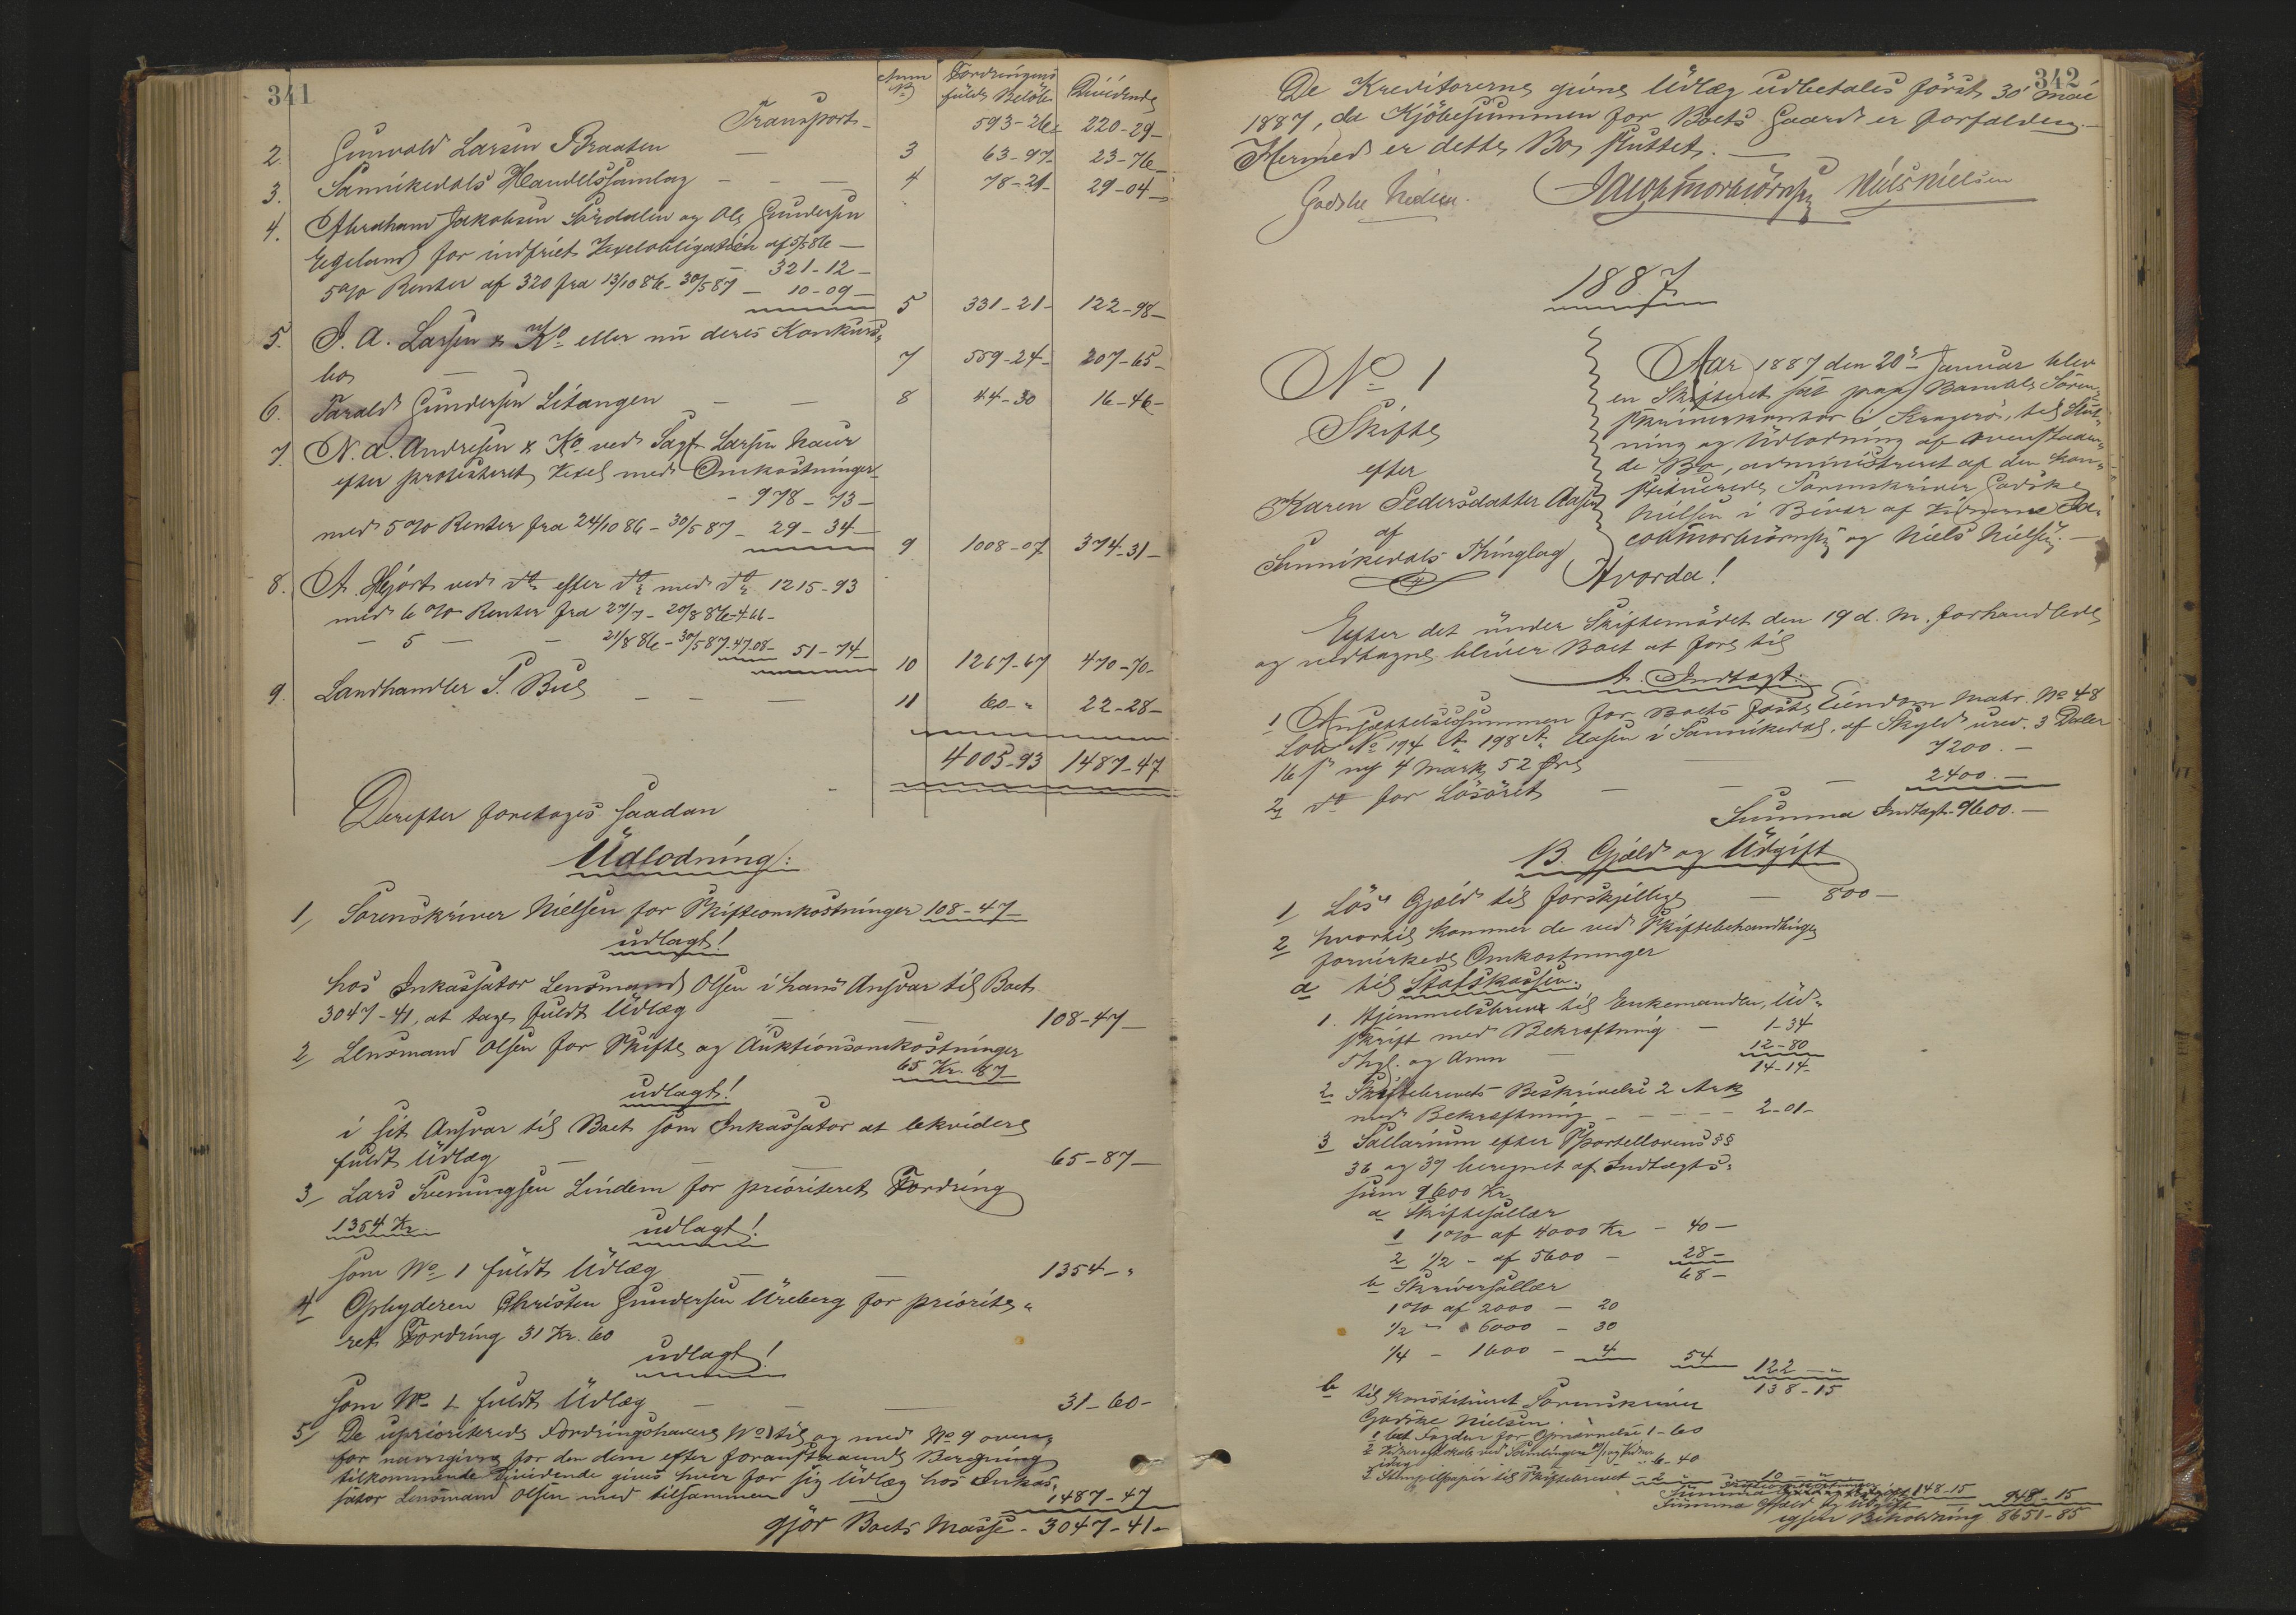 341
Anm No
Fordringens fulde Beløb
Dividende
Transport - 593-26 220-29-
2. Gunvald Larsen Braaten — 3 63-97- 23-76-
3. Sannikedals Handelssamlag - - - 4 78-21- 29-04-
4. Abraham Jakobsen Sørdalen og Ole Gundersen
Egeland for indfriet Vexelobligation af 5/5 86 —
- 321-12-
5% Renter af 320 fra 13/10 86 - 30/5 87 - 10-09- 5 331-21- 122-98-
5. J. A. Larsen & Ko eller nu deres Konkurs-
bo — 7 559-24- 207-65-
6. Tarald Gundersen Litangen - - 8 44-30 16-46-
7. N. A. Andresen & Ko ved Sagf. Larsen Naur
efter protesteret Vexel med Omkostninger
- 978-73-
med 5% Renter fra 24/10 86 - 30/5 87 - 29-34- 9 1008-07 374-31-
8. A. Hjort ved do efter do med do 1215-93
med 6% Renter fra 27/7 - 20/8 86 - 4-66-
- 5 - - 21/8 86 - 30/5 87 - 47-08 - 51-74- 10 1267-67 470-70-
9. Landhandler P. Bue - - — 11 60-" 22-28-
4005-93 1487-47
Derefter foretages saadan
Udlodning:
1, Sorenskriver Nielsen for Skifteomkostninger 108-47-
udlagt!
hos Inkassator Lensmand Olsen i hans Ansvar til Boet
3047-41, at tage fuldt Udlæg — — 108-47-
2, Lensmand Olsen for Skifte og Auktionsomkostninger
65 Kr. 87
udlagt!
i sit Ansvar til Boet som Inkassator at lekvidere
fuldt Udlæg — — — 65-87-
3, Lars Svenungsen Lindem for prioriteret Fordring
1354 Kr. udlagt!
som No 1 fuldt Udlæg — — 1354-"
4, Opbyderen Christen Gundersen Ureberg for priorite-
ret Fordring 31 Kr. 60
udlagt!
som No 1 fuldt Udlæg — — — 31-60-
5, De uprioriterede Fordringshavere No 1 til og med No 9 oven-
for navngivne for den dem efter foranstaaende Beregning
tilkommende Dividende gives hver for sig Udlæg hos Inkas-
sator Lensmand Olsen med tilsammen 1487-47
gjør Boets Masse - 3047-41-
342
De Kreditorerne givne Udlæg udbetales først 30 Mai
1887, da Kjøbesummen for Boets Gaard er forfalden. —
Hermed er dette Bo sluttet. —
Godske Nielsen. Jacob Thorbiørnsen Niels Nielsen
1887
No 1
Skifte
efter
Karen Pedersdatter Aasen
af
Sannikedals Thinglag
Aar 1887 den 20de Januar blev
en Skifteret sat paa Bamble Soren-
skriverkontor i Kragerø, til Slut-
ning og Udlodning af ovenstaaen-
de Bo, administreret af den kon-
stituerede Sorenskriver Godske
Nielsen i Bivær af Vidnerne Ja-
cob Thorbiørnsen og Niels Nielsen. —
Hvorda!
Efter det under Skiftemødet den 19 d. M. forhandlede
og vedtagne bliver Boet at føre til
A. Indtægt:
1 Ansættelsessummen for Boets faste Eiendom Matr. No 48
Lob No 194 A, 198 A, Aasen i Sannikedal, af Skyld ured. 3 Daler
16 s ny 4 Mark 52 Øre — 7200.-
2, do for Løsøret — — — 2400.-
Summa Indtægt - 9600.-
B. Gjæld og Udgift
1, Løs Gjæld til forskjellige — 800-
2 hvortil kommer de ved Skiftebehandlingen
forvirkede Omkostninger
a til Statskassen:
1. Hjemmelsbrev til Enkemanden, Ud-
skrift med Bekræftning - 1-34
Thgl. og Anm — 12-80
14-14-
2 Skiftebrevets Beskrivelse 2 Ark
med Bekræftning - - - - 2-01-
3 Sallarium efter Sportellovens §§
36 og 39 beregnet af Indtægts-
sum 9600 Kr
a Skiftesallær
1 1% af 4000 Kr - 40-
2 1/2 - af 5600 - 28-
68-
b Skriversallær
1% af 2000 - 20
1/2 - " 6000 - 30
1/4 - 1600 - 4 54 122-"
138-15
b til konstitueret Sorenskriver
Godske Nielsen.
1 bet. Fogden for Opnævnelse 1-60
6-40
3 Stempelpapir til Skiftebrevet - 2 - 10-"
Summa 148-15
Summa Gjæld og Udgift - 948-15
igjen Beholdning 8651-85